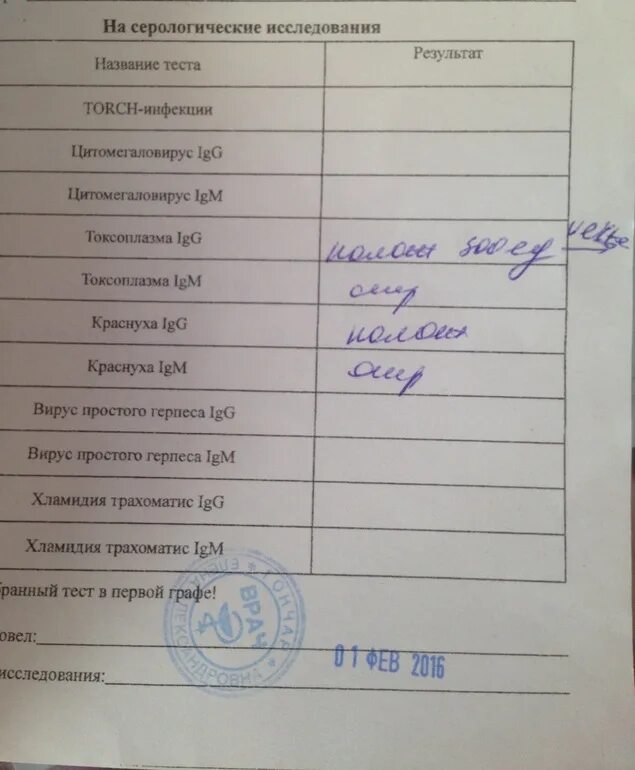 На серологические исследования
Название теста Результат
TORCH-инфекции
Цитомегаловирус IgG
Цитомегаловирус IgM
Токсоплазма IgG полож 300 ед
Токсоплазма IgM отр
Краснуха IgG полож
Краснуха IgM отр
Вирус простого герпеса IgG
Вирус простого герпеса IgM
Хламидия трахоматис IgG
Хламидия трахоматис IgM
бранный тест в первой графе!
овел:
исследования:
ГОНЧАР * ЕЛЕНА АЛЕКСАНДРОВНА *
ВРАЧ
01 ФЕВ 2016